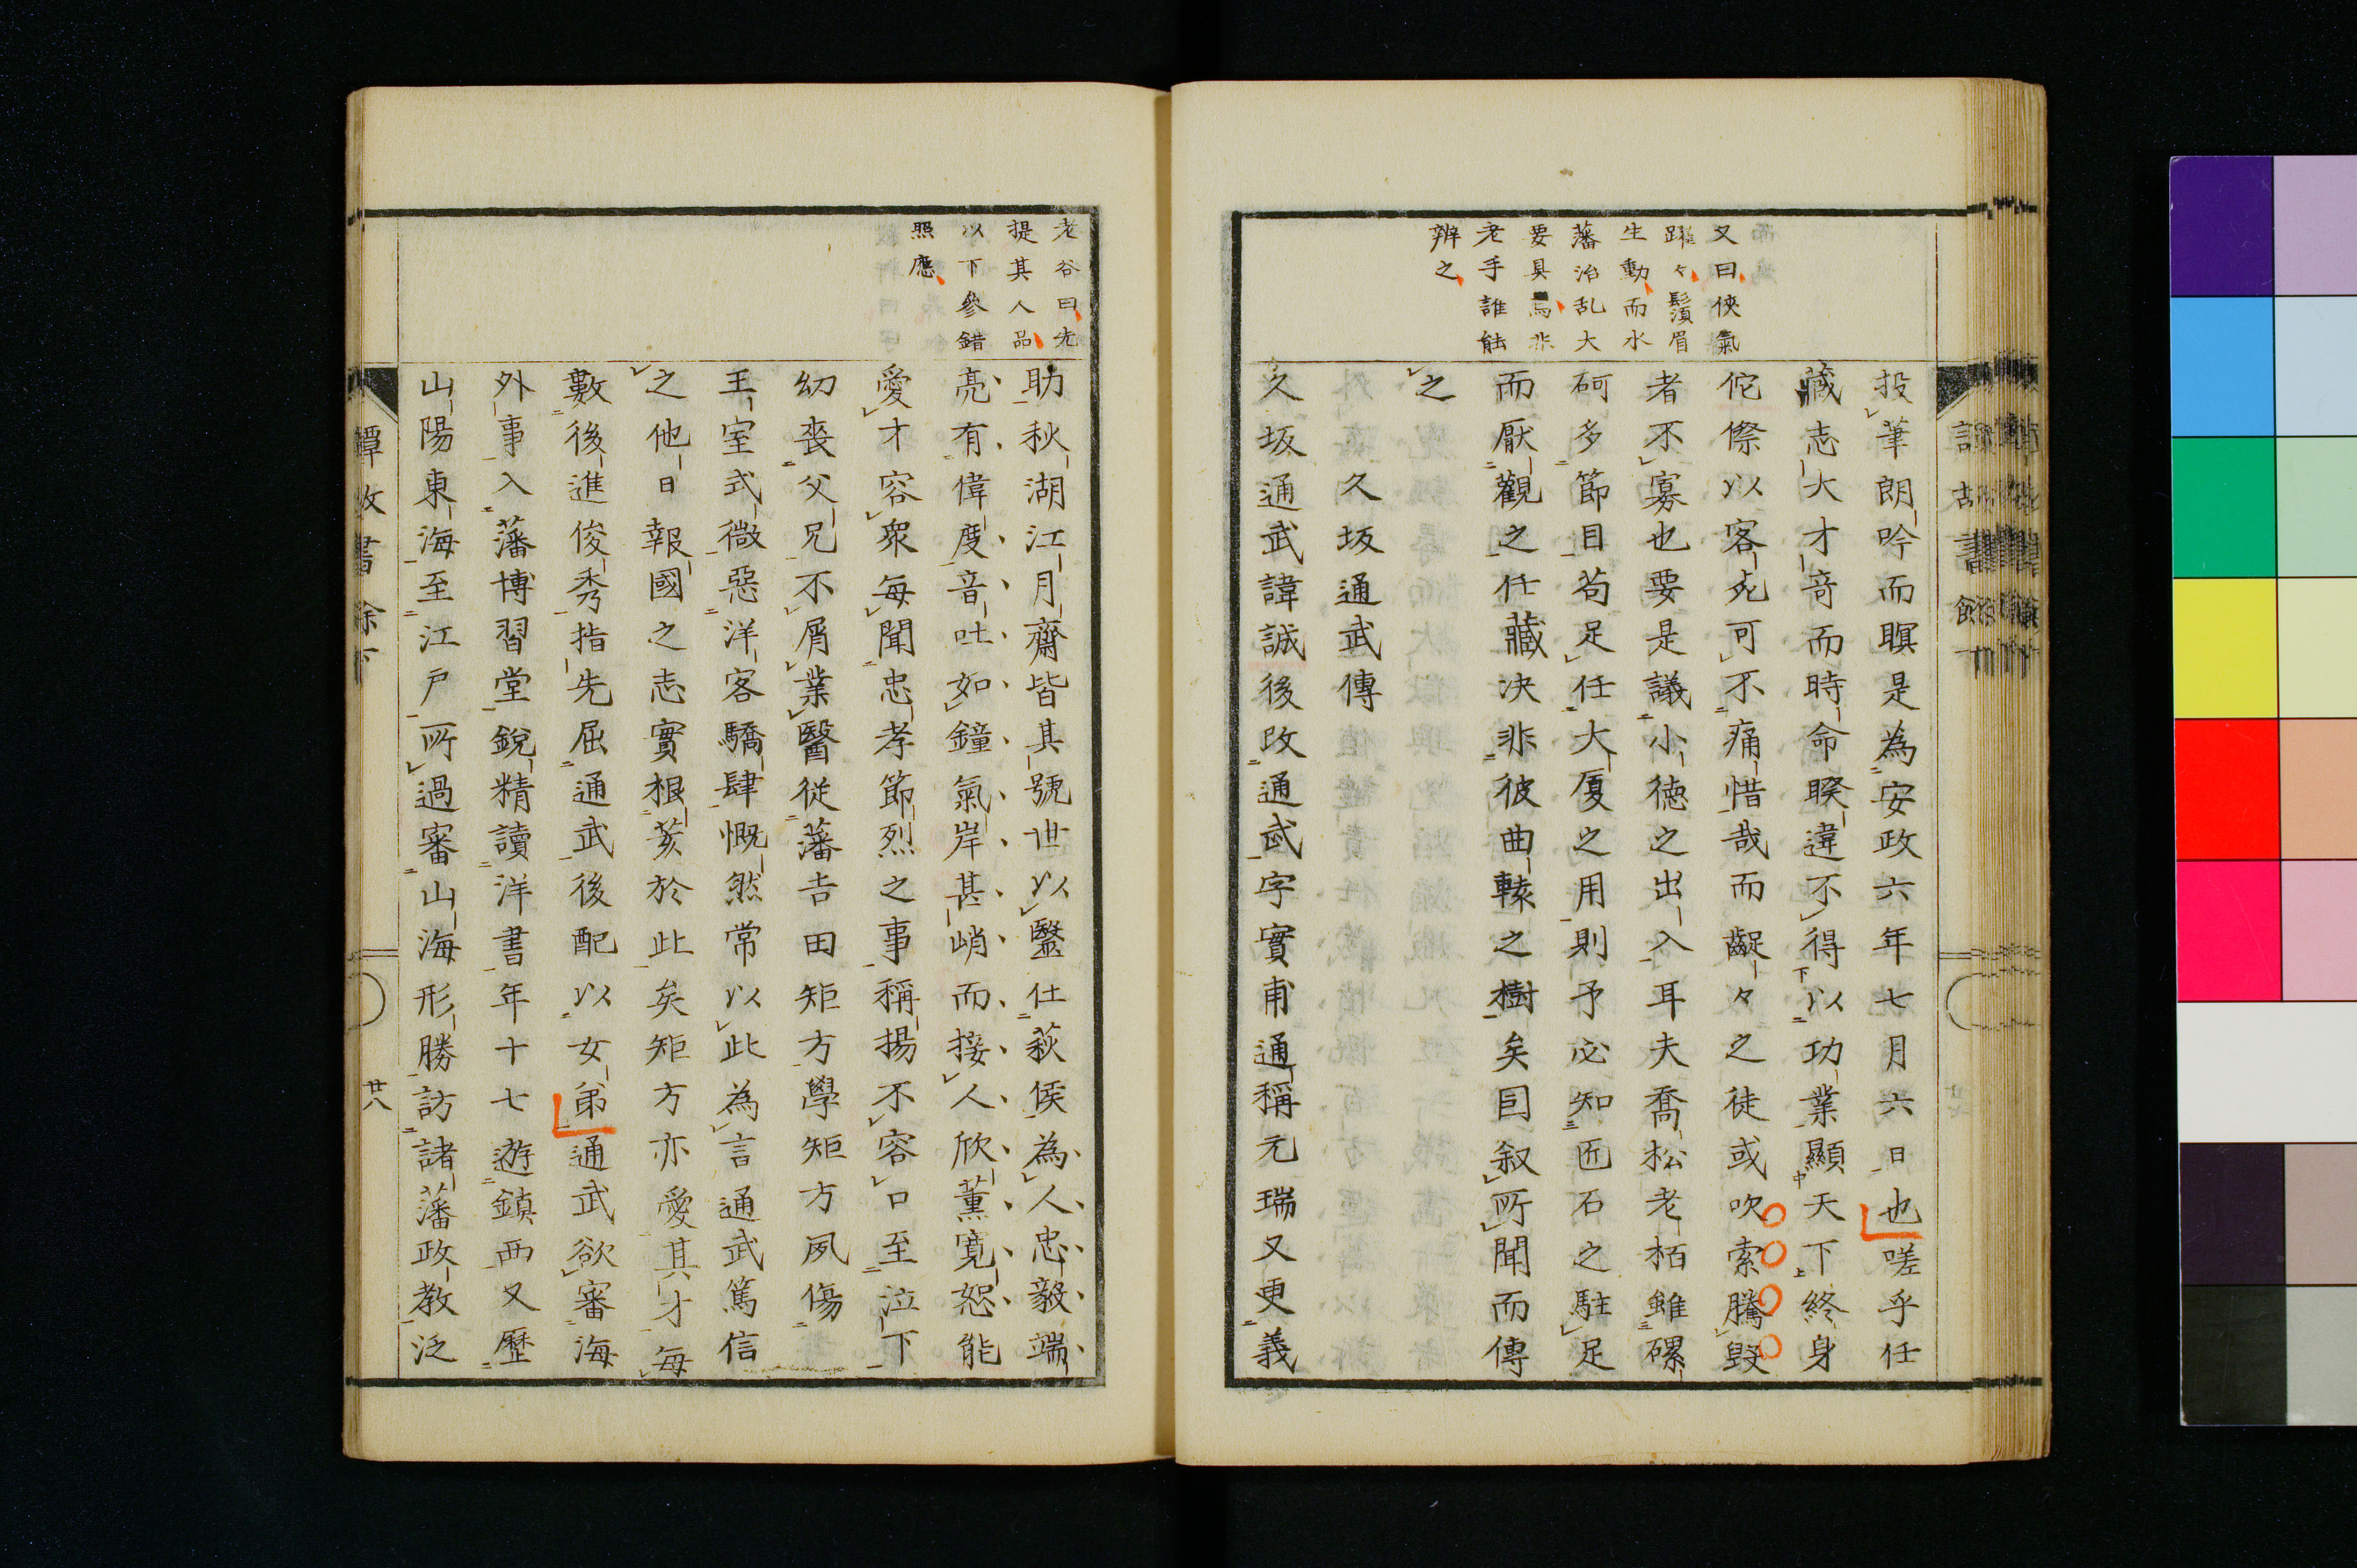 又曰俠氣
躍々鬚眉
生動而水
藩治乱大
要具焉非
老手誰能
辨之
投筆朗吟而瞑是為安政六年七月六日也嗟乎任
藏志大才奇而時命暌違不得以功業顯天下終身
佗傺以客死可不痛惜哉而齪々之徒或吹索騰毀
者不寡也要是議小徳之出入耳夫喬松老栢雖磥
砢多節目苟足任大厦之用則予必知匠石之駐足
而厭觀之任藏决非彼曲轅之樹矣因叙所聞而傳
之
久坂通武傳
久坂通武諱誠後改通武字實甫通稱元瑞又更義
老谷曰先
提其人品
以下參錯
照應
助秋湖江月齋皆其號世以醫仕萩侯為人忠毅端
亮有偉度音吐如鐘氣岸甚峭而接人欣薫寛恕能
愛才容衆每聞忠孝節烈之事稱揚不容口至泣下
幼喪父兄不屑業醫從藩吉田矩方學矩方夙傷
王室式微惡洋客驕肆慨然常以此為言通武篤信
之他日報國之志實根荄於此矣矩方亦愛其才每
數後進俊秀指先屈通武後配以女弟通武欲審海
外事入藩博習堂銳精讀洋書年十七遊鎮西又歷
山陽東海至江戸所過審山海形勝訪諸藩政教泛
廿八